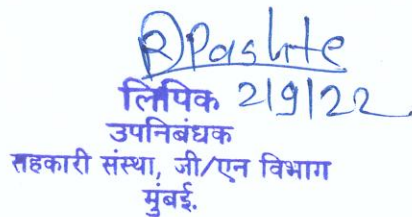 लिपिक 2/9/22
उपनिबंधक
सहकारी संस्था, जी/एन विभाग
मुंबई.